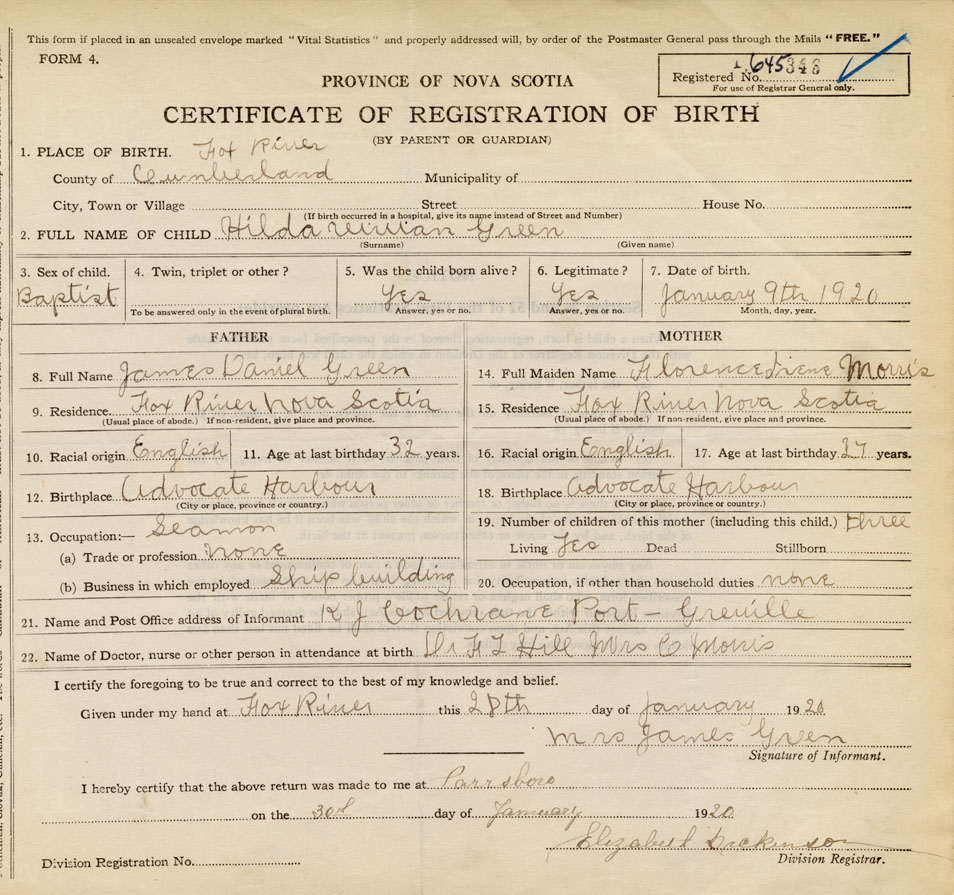 This form if placed in an unsealed envelope marked "Vital Statistics" and properly addressed will, by order of the Postmaster General pass through the Mails "FREE."
FORM 4.
Registered No. 645346
For use of Registrar General only.
PROVINCE OF NOVA SCOTIA
CERTIFICATE OF REGISTRATION OF BIRTH
(BY PARENT OR GUARDIAN)
1. PLACE OF BIRTH. Fox River
County of Cumberland Municipality of
City, Town or Village Street House No.
(If birth occurred in a hospital, give its name instead of Street and Number)
2. FULL NAME OF CHILD Hilda Green
(Surname) (Given name)
3. Sex of child. 4. Twin, triplet or other? 5. Was the child born alive? 6. Legitimate? 7. Date of birth.
Baptist Yes Yes January 9th 1920
To be answered only in the event of plural birth. Answer, yes or no. Answer, yes or no. Month, day, year.
FATHER MOTHER
8. Full Name James Daniel Green 14. Full Maiden Name Florence Irene Morris
9. Residence. Fox River Nova Scotia 15. Residence Fox River Nova Scotia
(Usual place of abode.) If non-resident, give place and province. (Usual place of abode.) If non-resident, give place and province.
10. Racial origin English 11. Age at last birthday 32 years. 16. Racial origin English 17. Age at last birthday 27 years.
12. Birthplace Advocate Harbour 18. Birthplace Advocate Harbour
(City or place, province or country.) (City or place, province or country.)
13. Occupation:— Seamon 19. Number of children of this mother (including this child.) three
(a) Trade or profession none Living Yes Dead Stillborn
(b) Business in which employed Ship building 20. Occupation, if other than household duties none
21. Name and Post Office address of Informant K J Cochrane Port - Greville
22. Name of Doctor, nurse or other person in attendance at birth Dr F L Hill Mrs C Morris
I certify the foregoing to be true and correct to the best of my knowledge and belief.
Given under my hand at Fox River this 28th day of January 1920
Mrs James Green
Signature of Informant.
I hereby certify that the above return was made to me at Parrsboro
on the 30th day of January 1920
Elizabeth Dickinson
Division Registrar.
Division Registration No.